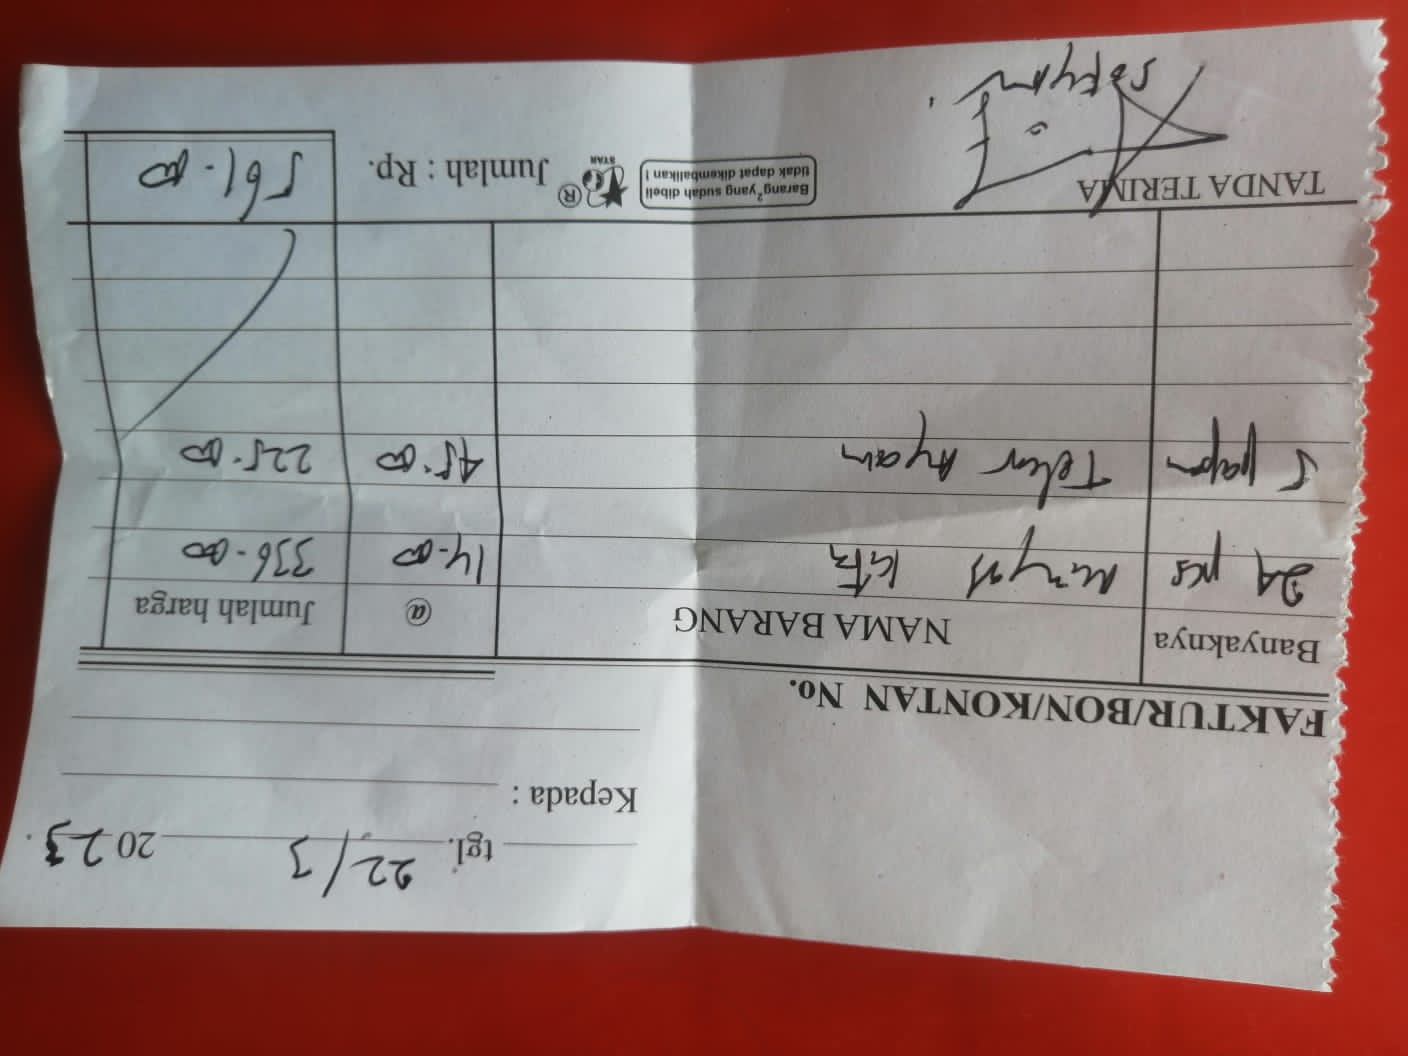 tgl. 22/3 2023.
Kepada :
FAKTUR/BON/KONTAN No.
Banyaknya NAMA BARANG @ Jumlah harga
24 pcs Minyak Kita 14.00 336.00
5 papan Telur Ayam 45.00 225.00
TANDA TERIMA Barang²yang sudah dibeli tidak dapat dikembalikan ! STAR ® Jumlah : Rp. 561.00